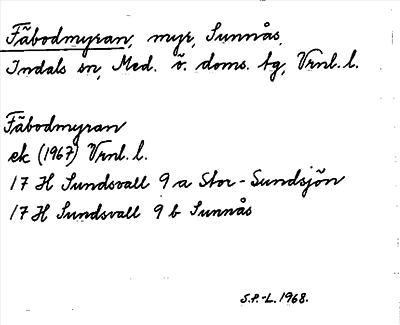 Fäbodmyran, myr, Sunnås,
Indals sn, Med. ö. doms. tg, Vrnl. l.
Fäbodmyran
ek (1967) Vrnl. l.
17 H Sundsvall 9 a Stor-Sundsjön
17 H Sundsvall 9 b Sunnås
S.P.-L. 1968.